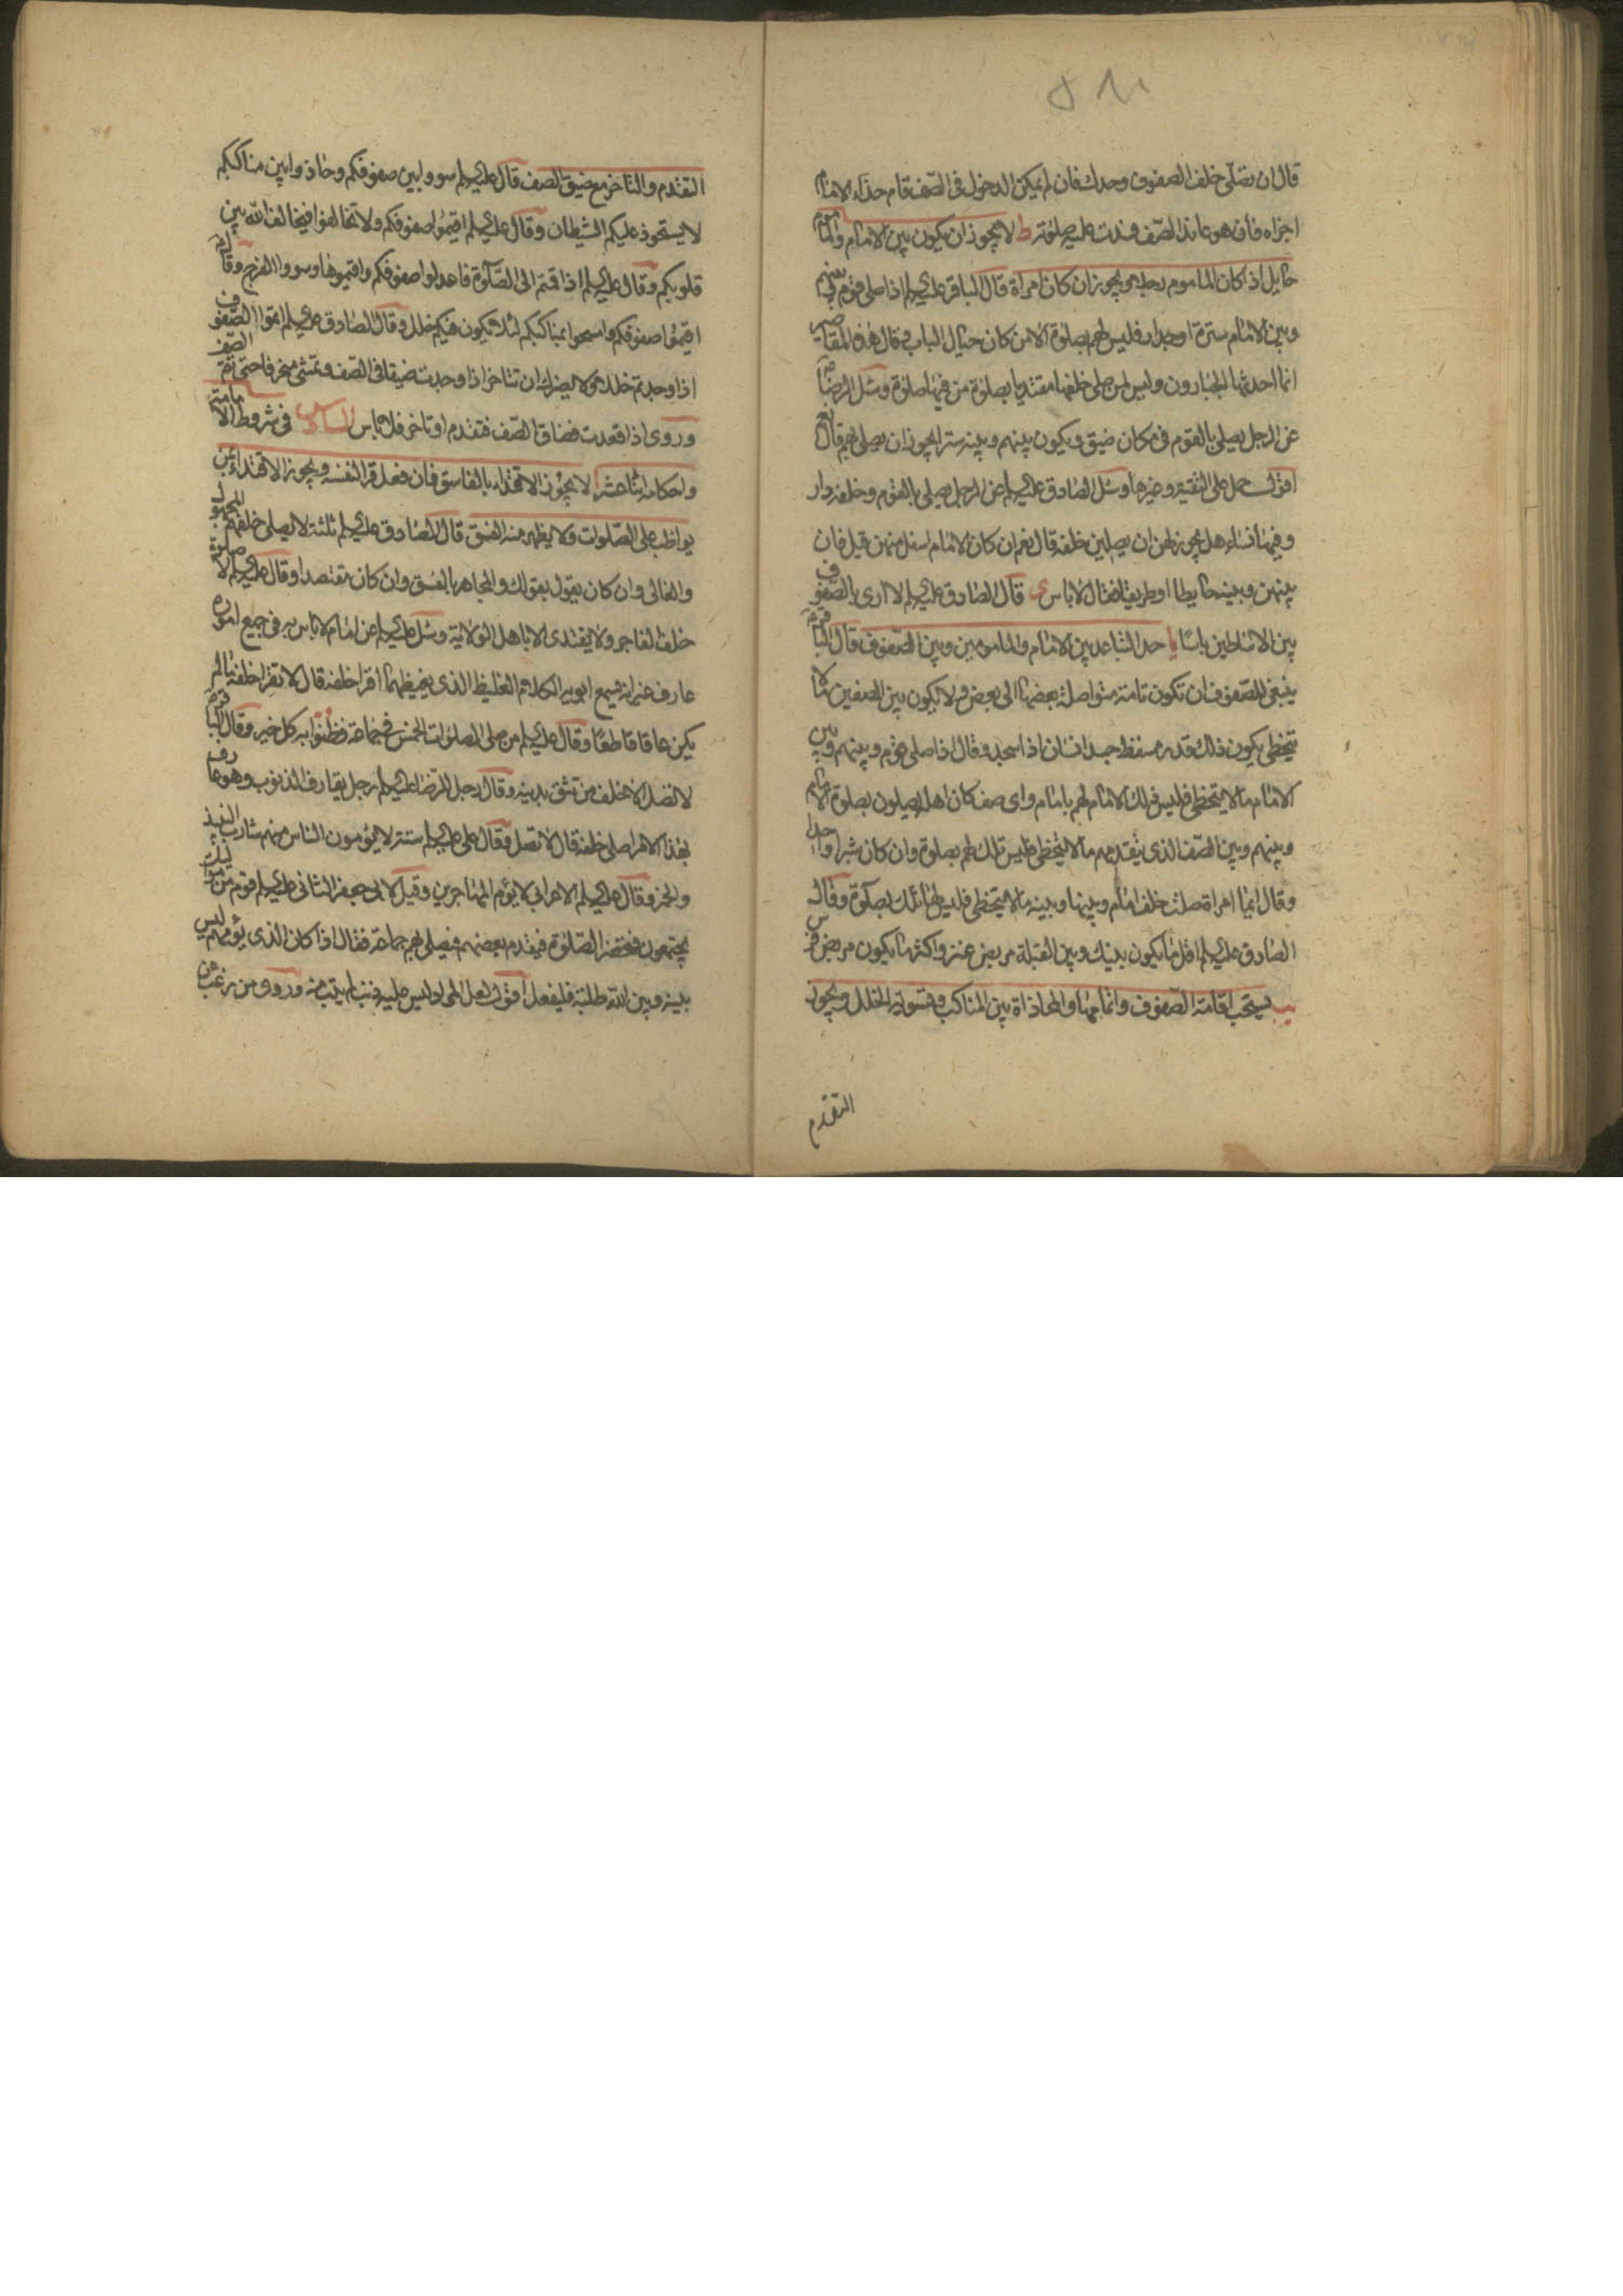 قال ان تصلي خلف الصفوف وحدك فان لم يمكن الدخول في الصف قام حذاء الامام
اجزاه فان هو عاند الصف فسدت عليه صلوته ط لا يجوز ان يكون بين الامام والماموم
حايل اذا كان الماموم رجلا ويجوز ان كان امراة قال الباقر عليه السلم اذا صلى قوم بينهم
وبين الامام سترة او جدار فليس لهم بصلوة الا من كان حيال الباب وقال هذه المقاصير
انما احدثها الجبارون وليس لمن صلى خلفها مقتديا بصلوة من فيها صلوة وسئل الرضا
عن الرجل يصلي بالقوم في مكان ضيق ويكون بينهم وبينه ستر ايجوز ان يصلي بهم قال نعم
اقول حمل على التقية وغيرها وسئل الصادق عليه السلم عن الرجل يصلي بالقوم وخلفه دار
وفيها نساء هل يجوز لهن ان يصلين خلفه قال نعم ان كان الامام اسفل منهن قيل فان
بينهن وبينه حايطا او طريقا فقال لا باس ى قال الصادق عليه السلم لا ارى بالصفوف
بين الاساطين باسا يا حد التباعد بين الامام والمامومين وبين الصفوف قال الباقر
ينبغي للصفوف ان تكون تامة متواصلة بعضها الى بعض ولا يكون بين الصفين مالا
يتخطى يكون ذلك قدر مسقط جسد انسان اذا سجد وقال اذا صلى قوم وبينهم وبين
الامام ما لا يتخطى فليس ذلك الامام لهم بامام واى صف كان اهله يصلون بصلوة الامام
وبينهم وبين الصف الذى يتقدمهم ما لا يتخطى فليس تلك لهم بصلوة وان كان شبرا واحدا
وقال ايما امراة صلت خلف امام وبينها وبينه ما لا يتخطى فليس لها تلك بصلوة وقال
الصادق عليه السلم اقل ما يكون بينك وبين القبلة مربض عنز واكثر ما يكون مربض فرس
يب يستحب اقامة الصفوف واتمامها والمحاذاة بين المناكب وتسوية الخلل ويجوز
التقدم
التقدم والتاخر مع ضيق الصف قال عليه السلم سووا بين صفوفكم وحاذوا بين مناكبكم
لا يستحوذ عليكم الشيطان وقال عليه السلم اقيموا صفوفكم ولا تخالفوا فيخالف الله بين
قلوبكم وقال عليه السلم اذا قمتم الى الصلوة فاعدلوا صفوفكم واقيموها وسووا الفرج وقال
اقيموا صفوفكم وامسحوا بمناكبكم لئلا يكون فيكم خلل وقال الصادق عليه السلم اتموا الصفوف
اذا وجدتم خللا ولا يضرك ان تتاخر اذا وجدت ضيقا في الصف وتمشى منحرفا حتى تتم الصف
وروى اذا قعدت فضاق الصف فتقدم او تاخر فلا باس السادس في شروط الامامة
واحكامه اثنا عشر ا لا يجوز الاقتداء بالفاسق فان فعل قرا لنفسه ويجوز الاقتداء بمن
يواظب على الصلوات ولا يظهر منه الفسق قال الصادق عليه السلم ثلثة لا يصلى خلفهم المجهول
والغالي وان كان يقول بقولك والمجاهر بالفسق وان كان مقتصدا وقال عليه السلم لا صلوة
خلف الفاجر ولا يقتدى الا باهل الولاية وسئل عليه السلم عن امام لا باس به في جميع اموره
عارف غير انه يسمع ابويه الكلام الغليظ الذى يغيظهما اقرا خلفه قال لا تقرا خلفه ما لم
يكن عاقا قاطعا وقال عليه السلم من صلى الصلوات الخمس في جماعة فظنوا به كل خير وقال الباقر
لا تصل الا خلف من تثق بدينه وقال رجل للرضا عليه السلم رجل يقارف الذنوب وهو عارف
بهذا الامر اصلى خلفه قال لا تصل وقال على عليه السلم ستة لا يؤمون الناس منهم شارب النبيذ
والخمر وقال عليه السلم الاعرابي لا يؤم المهاجرين وقيل لابى جعفر الثاني عليه السلم قوم من مواليك
يجتمعون فتحضر الصلوة فيقدم بعضهم فيصلى بهم جماعة فقال اذا كان الذى يؤمهم ليس
بينه وبين الله طلبة فليفعل اقول لعل المراد ليس عليه ذنب لم يتب منه وروى من رغب عن